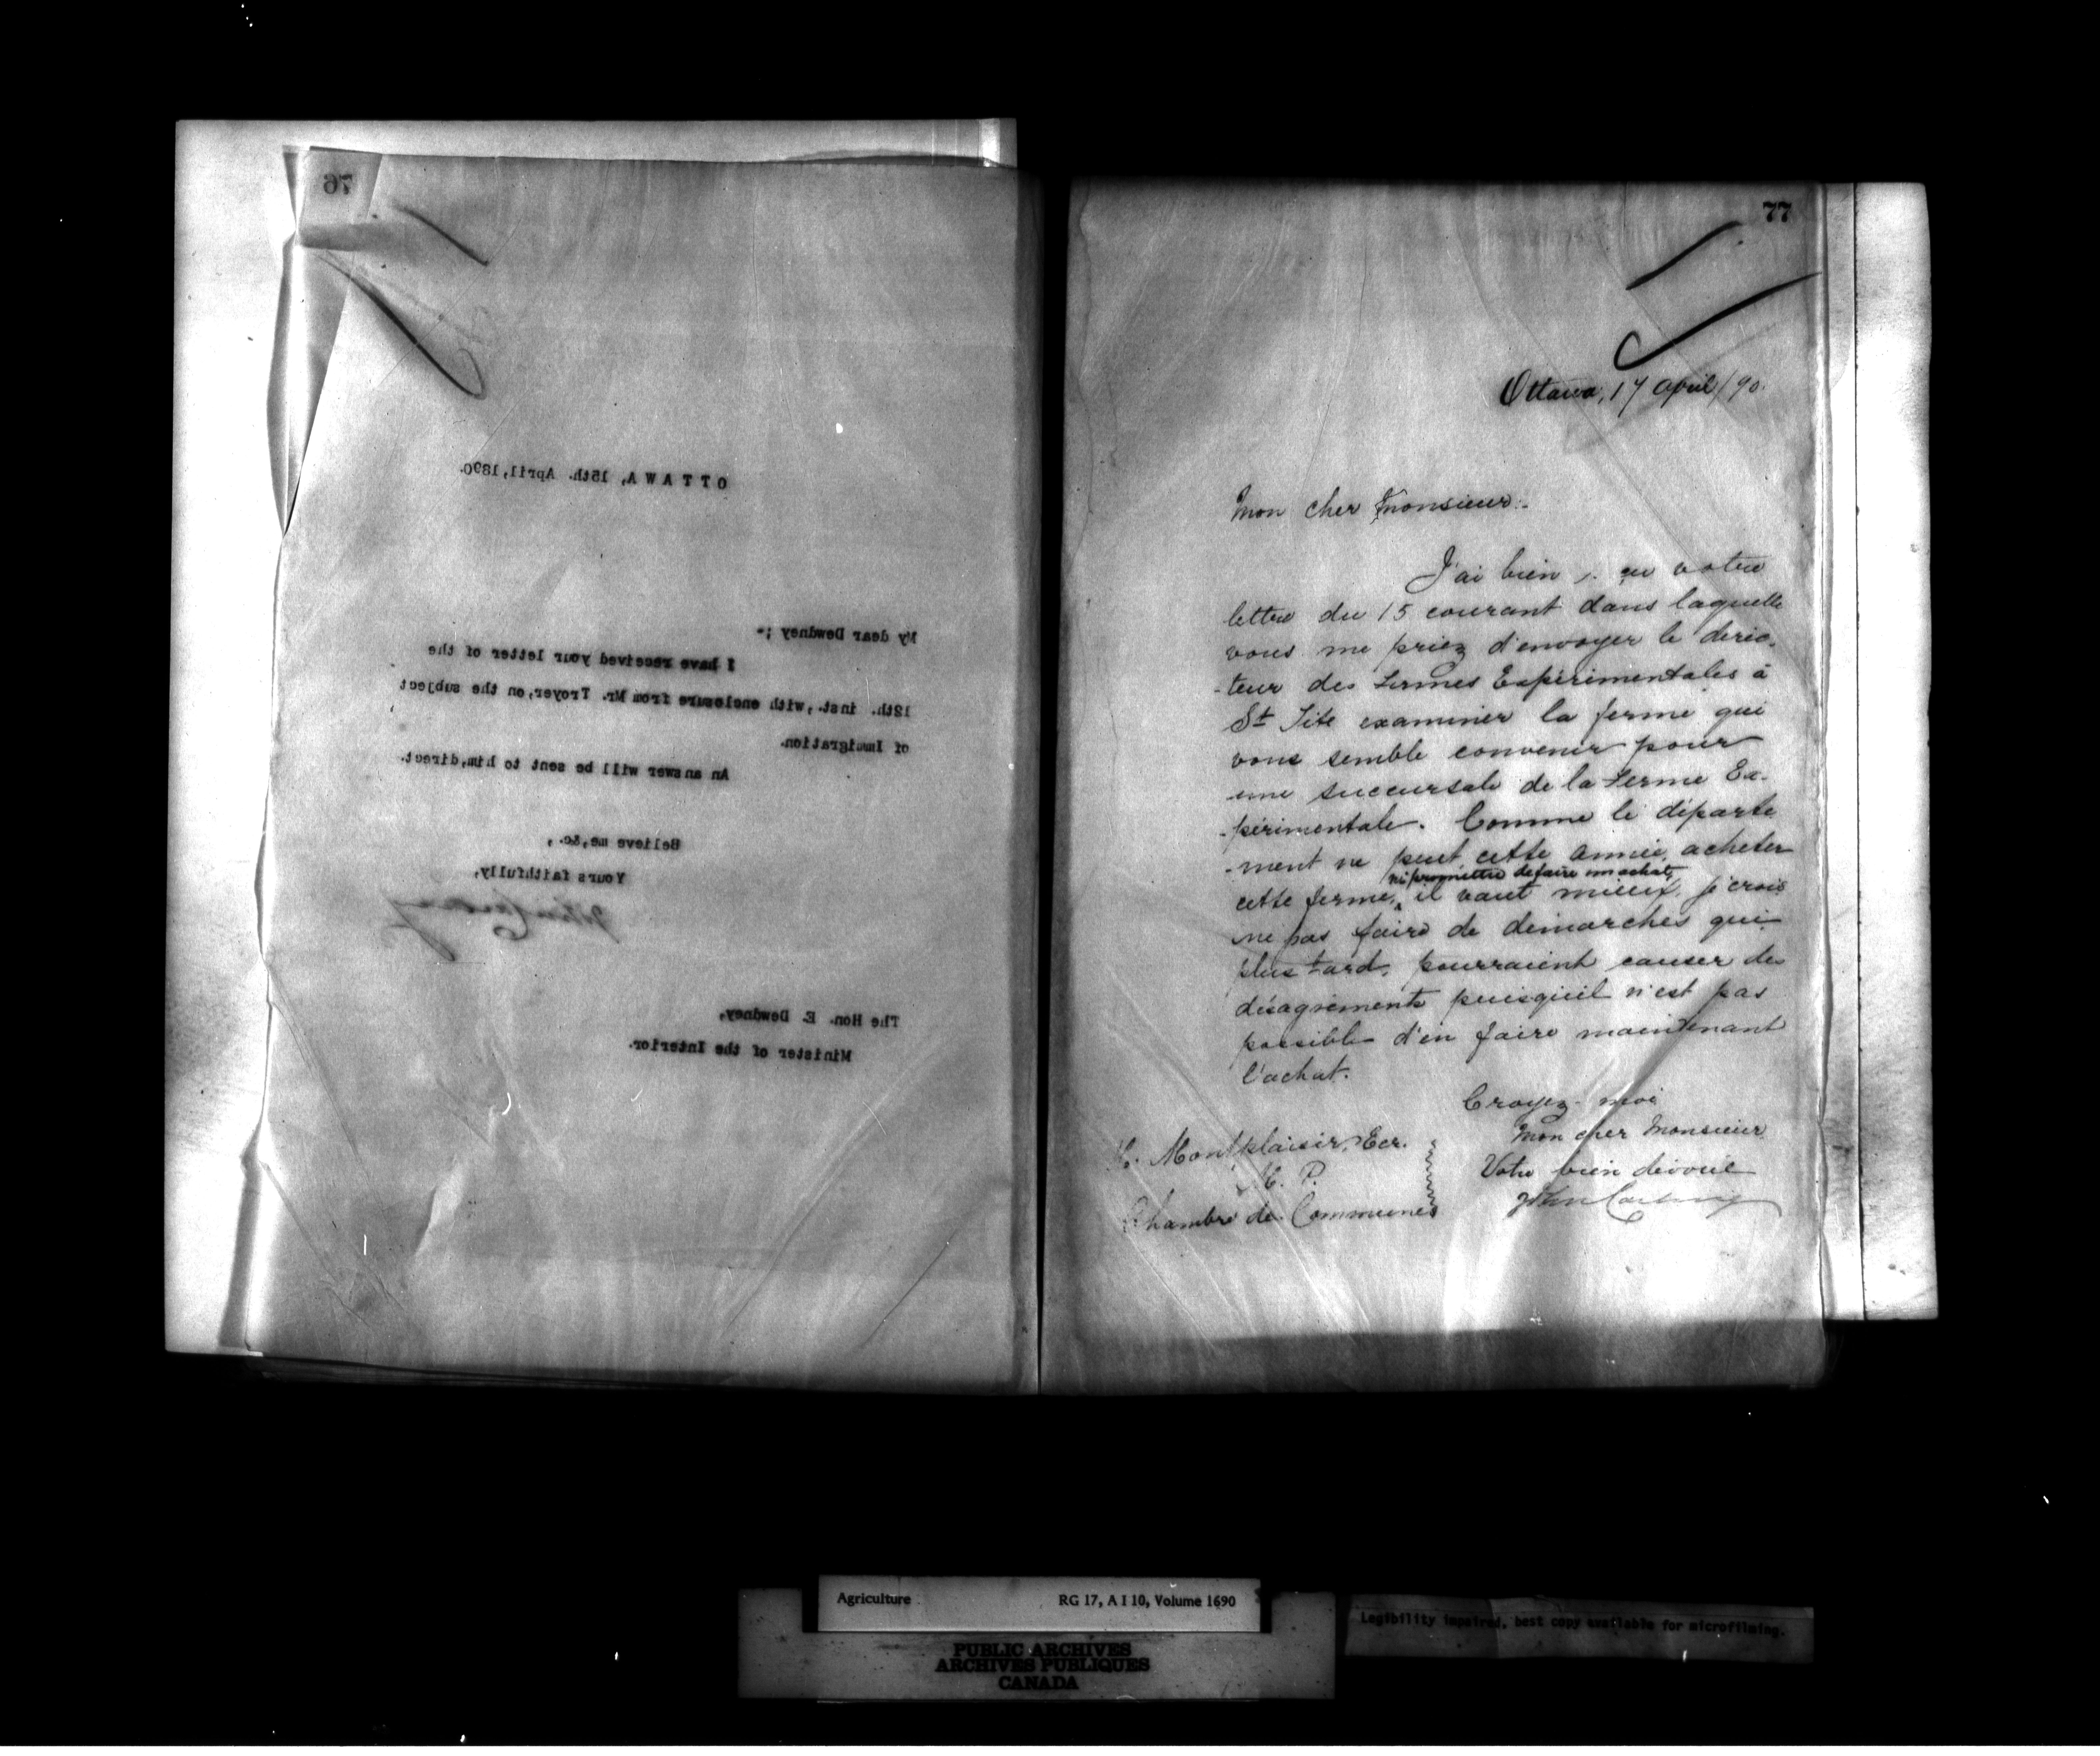 76
OTTAWA, 15th. April, 1890.
My dear Dewdney ;-
I have received your letter of the
12th. inst., with enclosure from Mr. Troyer, on the subject
of Immigration.
An answer will be sent to him, direct.
Believe me, &c.,
Yours faithfully,
John Carling
The Hon. E. Dewdney,
Minister of the Interior.
77
Ottawa, 17 april/90.
Mon cher Monsieur:-
J'ai bien reçu votre
lettre du 15 courant dans laquelle
vous me priez d'envoyer le direc-
-teur des Fermes Expérimentales à
St Tite examiner la ferme qui
vous semble convenir pour
une succursale de la Ferme Ex-
-périmentale. Comme le départe
-ment ne peut, cette année, acheter
ni promettre de faire un achat,
cette ferme, il vaut mieux, je crois
ne pas faire de démarches qui,
plus tard, pourraient causer des
désagréments puisqu'il n'est pas
possible d'en faire maintenant
l'achat.
Croyez-moi
Mon cher Monsieur
Votre bien dévoué
John Carling
H. Montplaisir, Ecr.
M. P.
Chambre de Communes
Agriculture RG 17, A I 10, Volume 1690
PUBLIC ARCHIVES
ARCHIVES PUBLIQUES
CANADA
Legibility impaired, best copy available for microfilming.